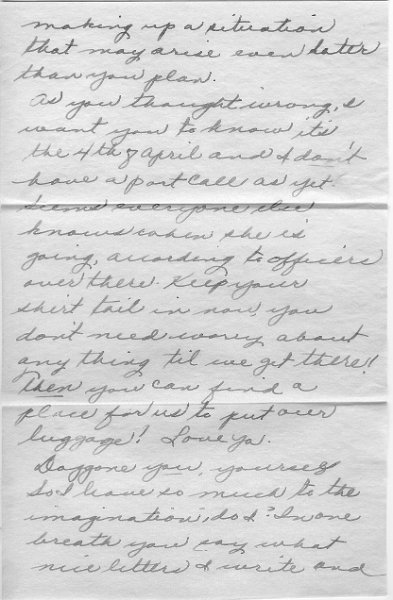 making up a situation
that may arise even later
than you plan.
As you thought wrong, I
want you to know it's
the 4th of April and I don't
have a port call as yet.
Seems everyone else
knows when she is
going, according to officers
over there. Keep your
shirt tail in now, you
don't need worry about
any thing til we get there!!
Then you can find a
place for us to put our
luggage! Love ya.
Doggone you, yourself
So I leave so much to the
imagination, do I? In one
breath you say what
nice letters I write and